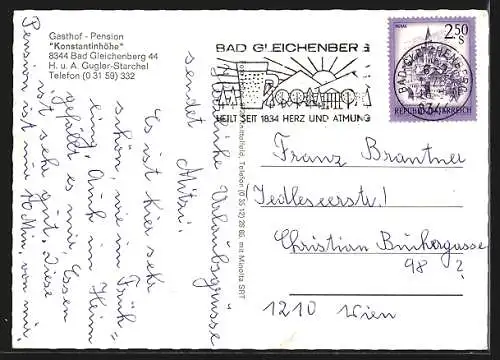 Gasthof - Pension
"Konstantinhöhe"
8344 Bad Gleichenberg 44
H. u. A. Gugler-Starchel
Telefon (0 31 59) 332
BAD GLEICHENBERG
HEILT SEIT 1834 HERZ UND ATMUNG
2.50
S
REPUBLIK ÖSTERREICH
BAD GLEICHENBERG
8344
Telefon (0 35 12) 28 65 mit Minolta SRT
Herzliche Urlaubsgrüsse
sendet Mitzi.
Es ist hier sehr
schön, wie im Früh=
ling. Auch im Heim
gefällt es mir, Essen
ist sehr gut. Diese
Pension ist nur 10 Min. von mir.
Franz Brantner
Jedleseerstr.!
Christian Buchergasse
98 ?
1210 Wien